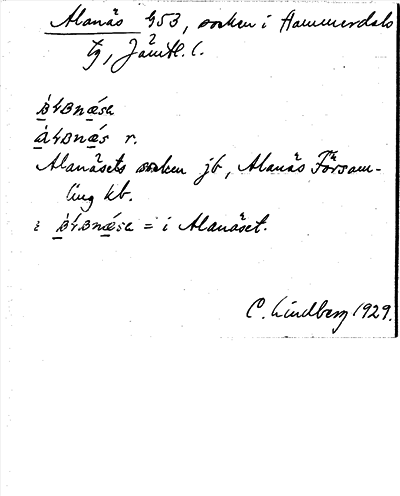 Alanäs 953, socken i Hammerdals
tg, Jämtl. l.
r.
Alanäsets socken jb, Alanäs Församling kb.
i = i Alanäset.
C. Lindberg 1929.